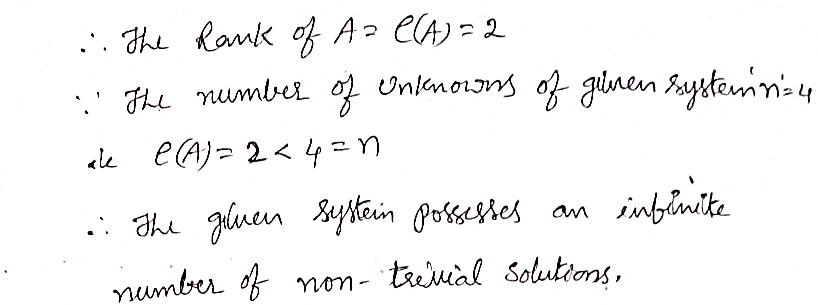 ∴ The Rank of A = ρ(A) = 2
∵ The number of unknowns of given system 'n' = 4
ie ρ(A) = 2 < 4 = n
∴ The given system possesses an infinite
number of non-trivial solutions.